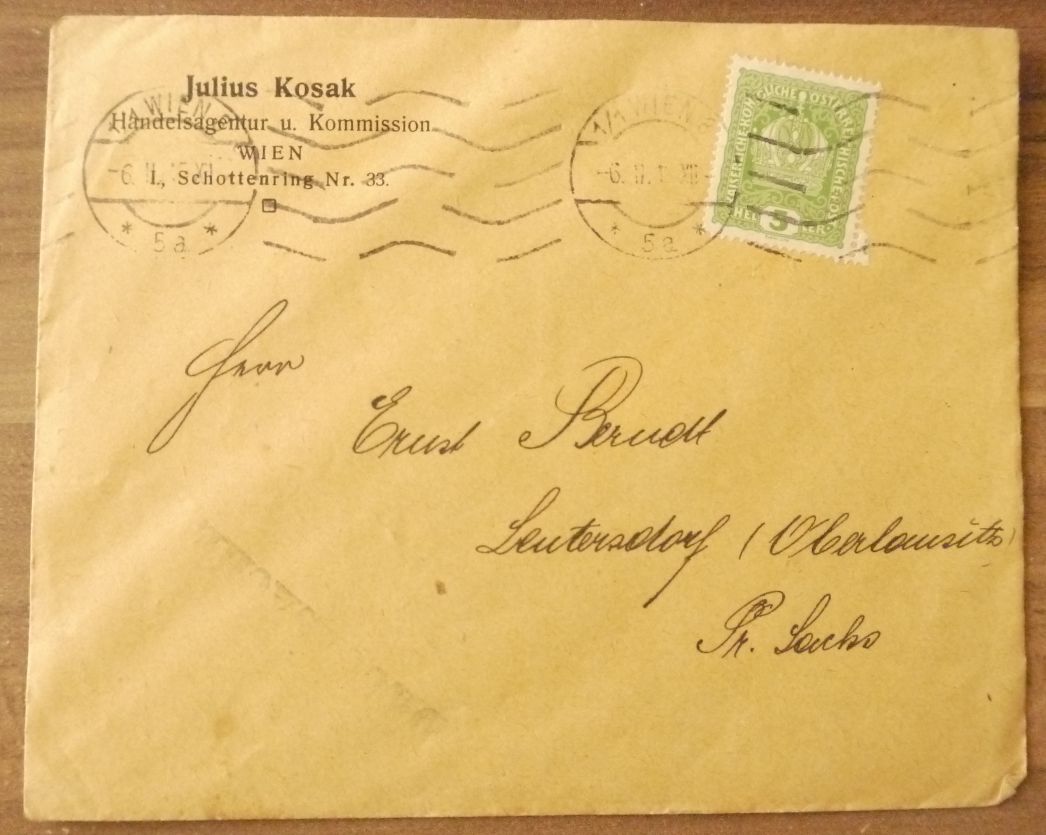 Julius Kosak
Handelsagentur u. Kommission
WIEN
I., Schottenring Nr. 33.
1/1 WIEN
-6. II. XII
* 5a *
1/1 WIEN
-6. II. XII
* 5a *
KAISERLICHE KÖN
IGLICHE ÖSTERREICHISCHE POST
HELLER
5
Herrn
Ernst Berndt
Leutersdorf (Oberlausitz)
Pr. Sachs